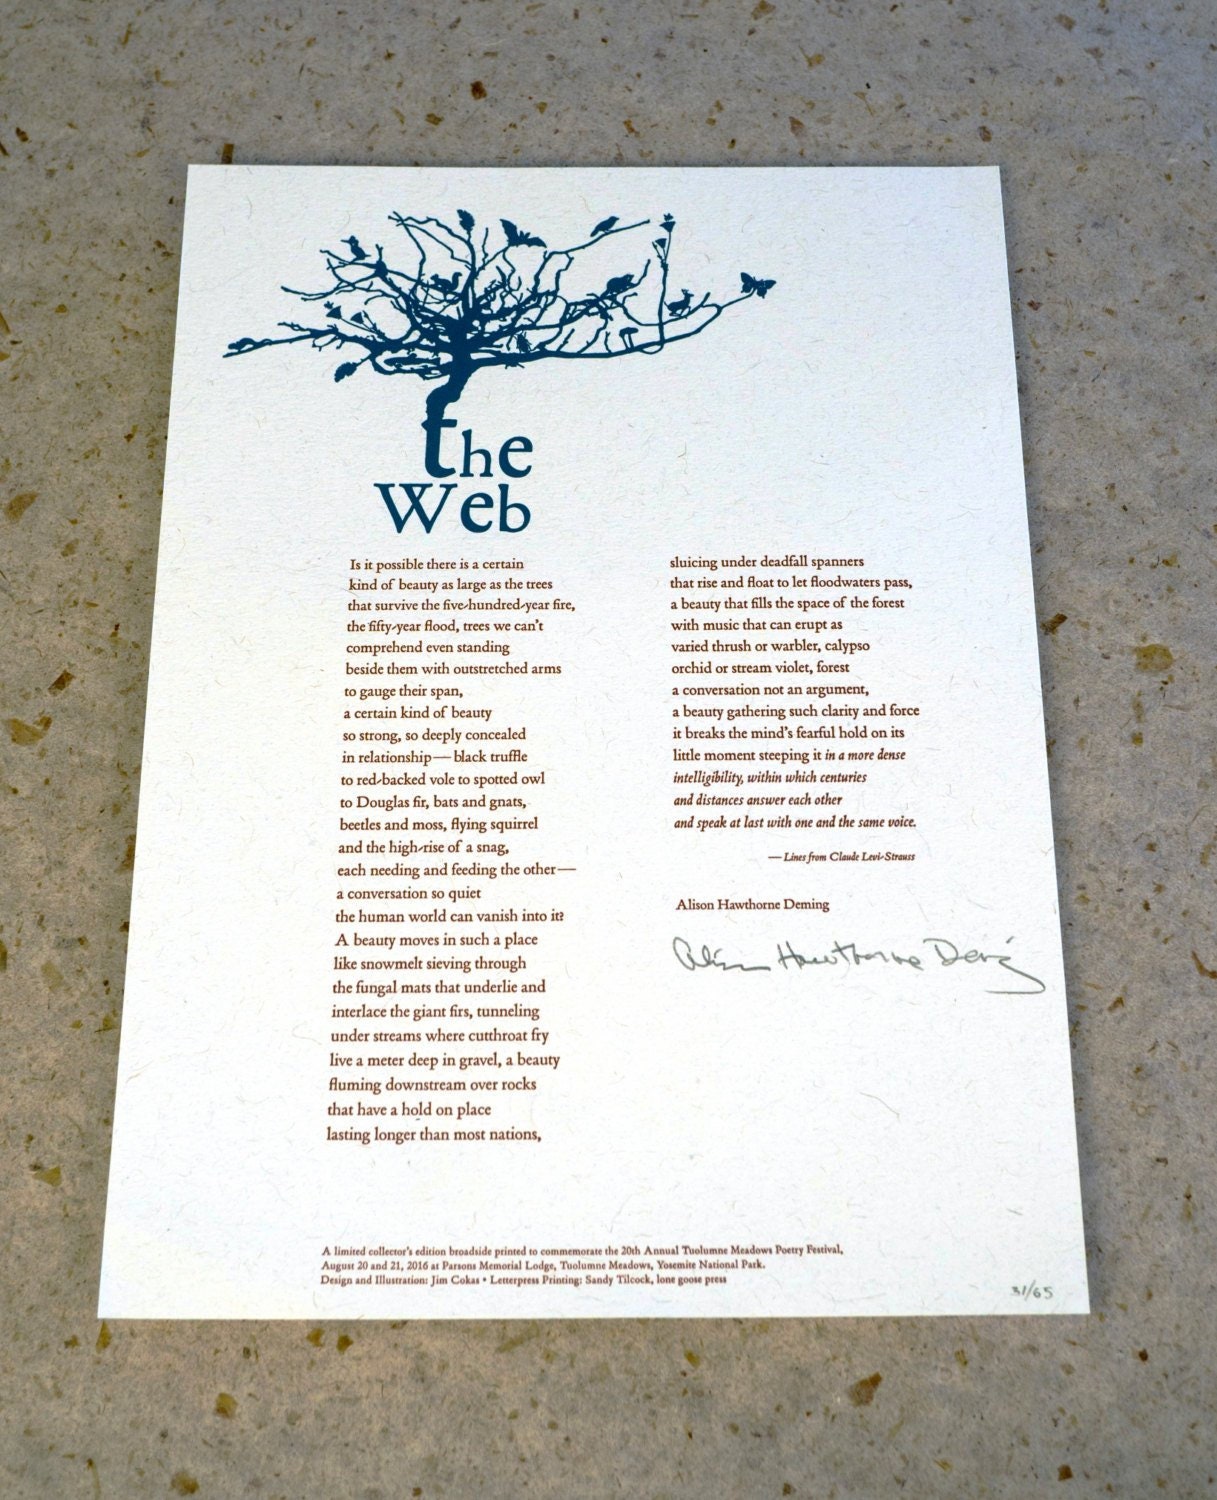 the
Web
Is it possible there is a certain
kind of beauty as large as the trees
that survive the five-hundred-year fire,
the fifty-year flood, trees we can't
comprehend even standing
beside them with outstretched arms
to gauge their span,
a certain kind of beauty
so strong, so deeply concealed
in relationship — black truffle
to red-backed vole to spotted owl
to Douglas fir, bats and gnats,
beetles and moss, flying squirrel
and the high-rise of a snag,
each needing and feeding the other—
a conversation so quiet
the human world can vanish into it?
A beauty moves in such a place
like snowmelt sieving through
the fungal mats that underlie and
interlace the giant firs, tunneling
under streams where cutthroat fry
live a meter deep in gravel, a beauty
fluming downstream over rocks
that have a hold on place
lasting longer than most nations,
sluicing under deadfall spanners
that rise and float to let floodwaters pass,
a beauty that fills the space of the forest
with music that can erupt as
varied thrush or warbler, calypso
orchid or stream violet, forest
a conversation not an argument,
a beauty gathering such clarity and force
it breaks the mind's fearful hold on its
little moment steeping it in a more dense
intelligibility, within which centuries
and distances answer each other
and speak at last with one and the same voice.
— Lines from Claude Levi-Strauss
Alison Hawthorne Deming
Alison Hawthorne Deming
A limited collector's edition broadside printed to commemorate the 20th Annual Tuolumne Meadows Poetry Festival,
August 20 and 21, 2016 at Parsons Memorial Lodge, Tuolumne Meadows, Yosemite National Park.
Design and Illustration: Jim Cokas • Letterpress Printing: Sandy Tilcock, lone goose press
31/65